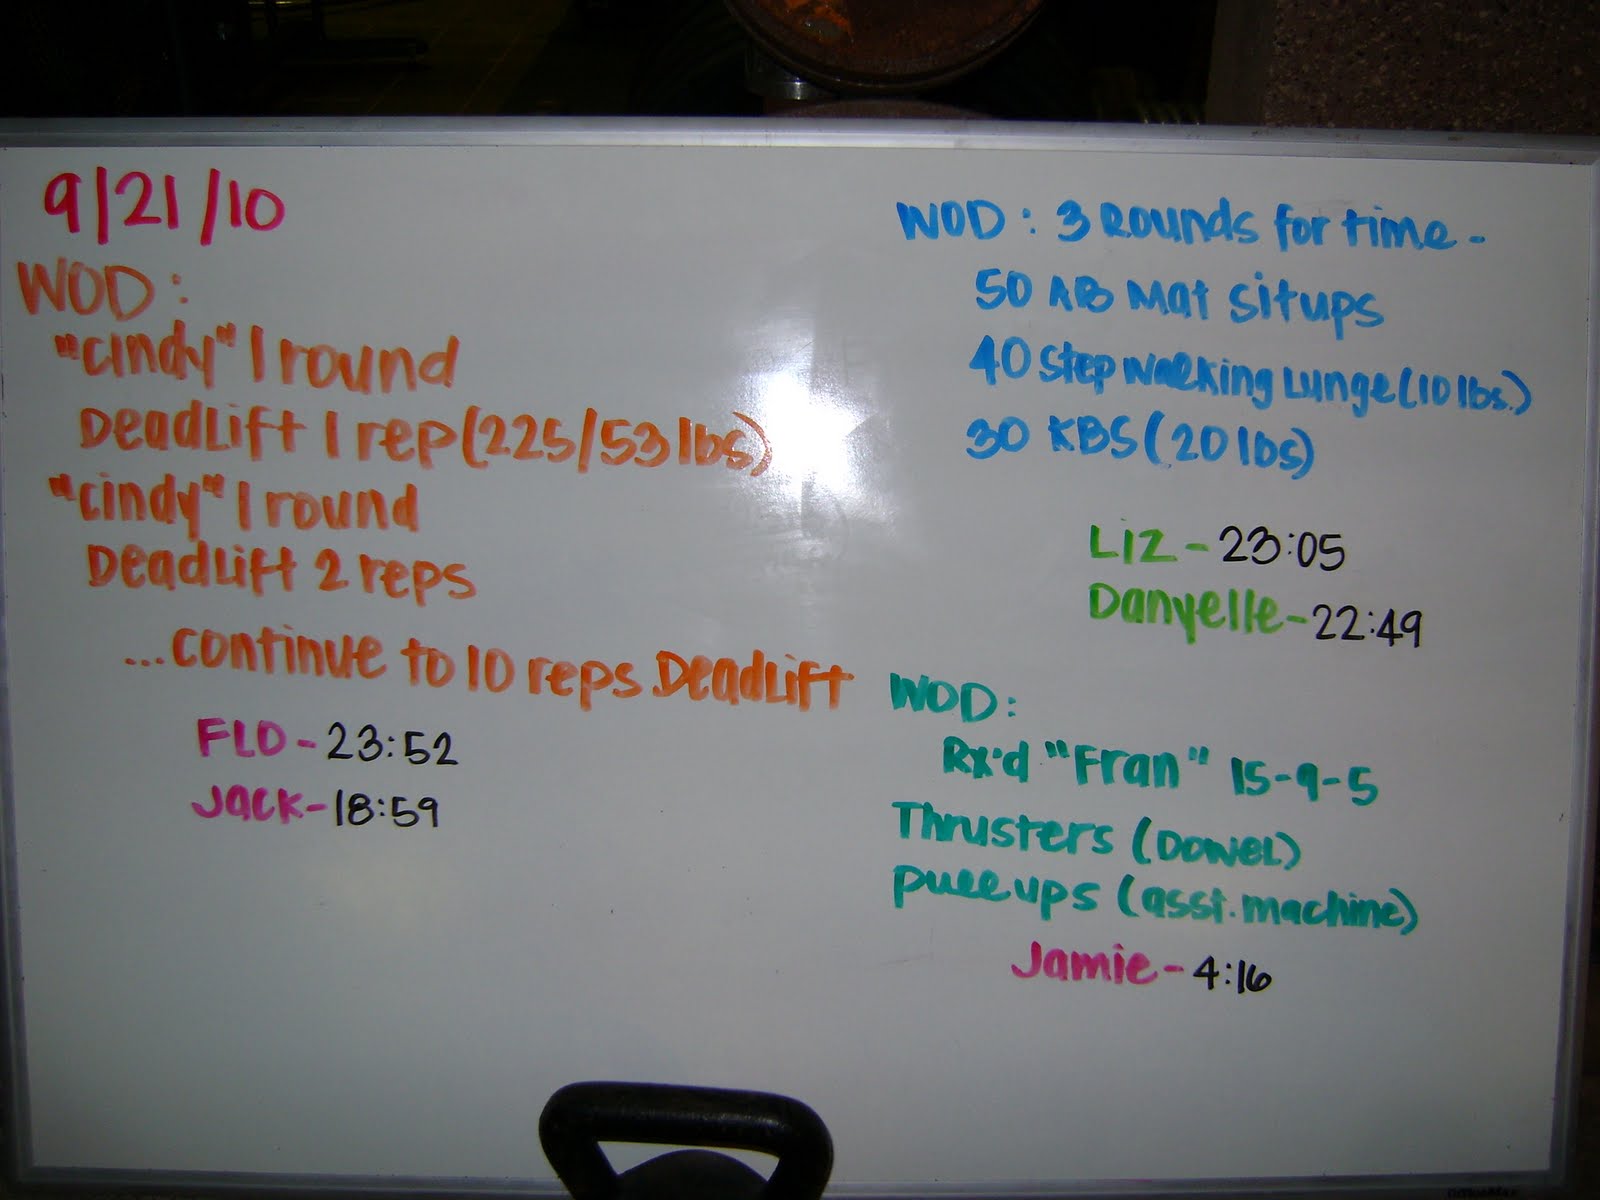 9/21/10
WOD:
"Cindy" 1 round
DeadLift 1 rep (225/53 lbs)
"Cindy" 1 round
DeadLift 2 reps
...continue to 10 reps DeadLift
FLO - 23:52
Jack - 18:59
WOD: 3 Rounds for time -
50 AB Mat Situps
40 Step Walking Lunge (10 lbs.)
30 KBS (20 lbs)
Liz - 23:05
Danyelle - 22:49
WOD:
Rx'd "Fran" 15-9-5
Thrusters (Dowel)
Pullups (asst. machine)
Jamie - 4:16